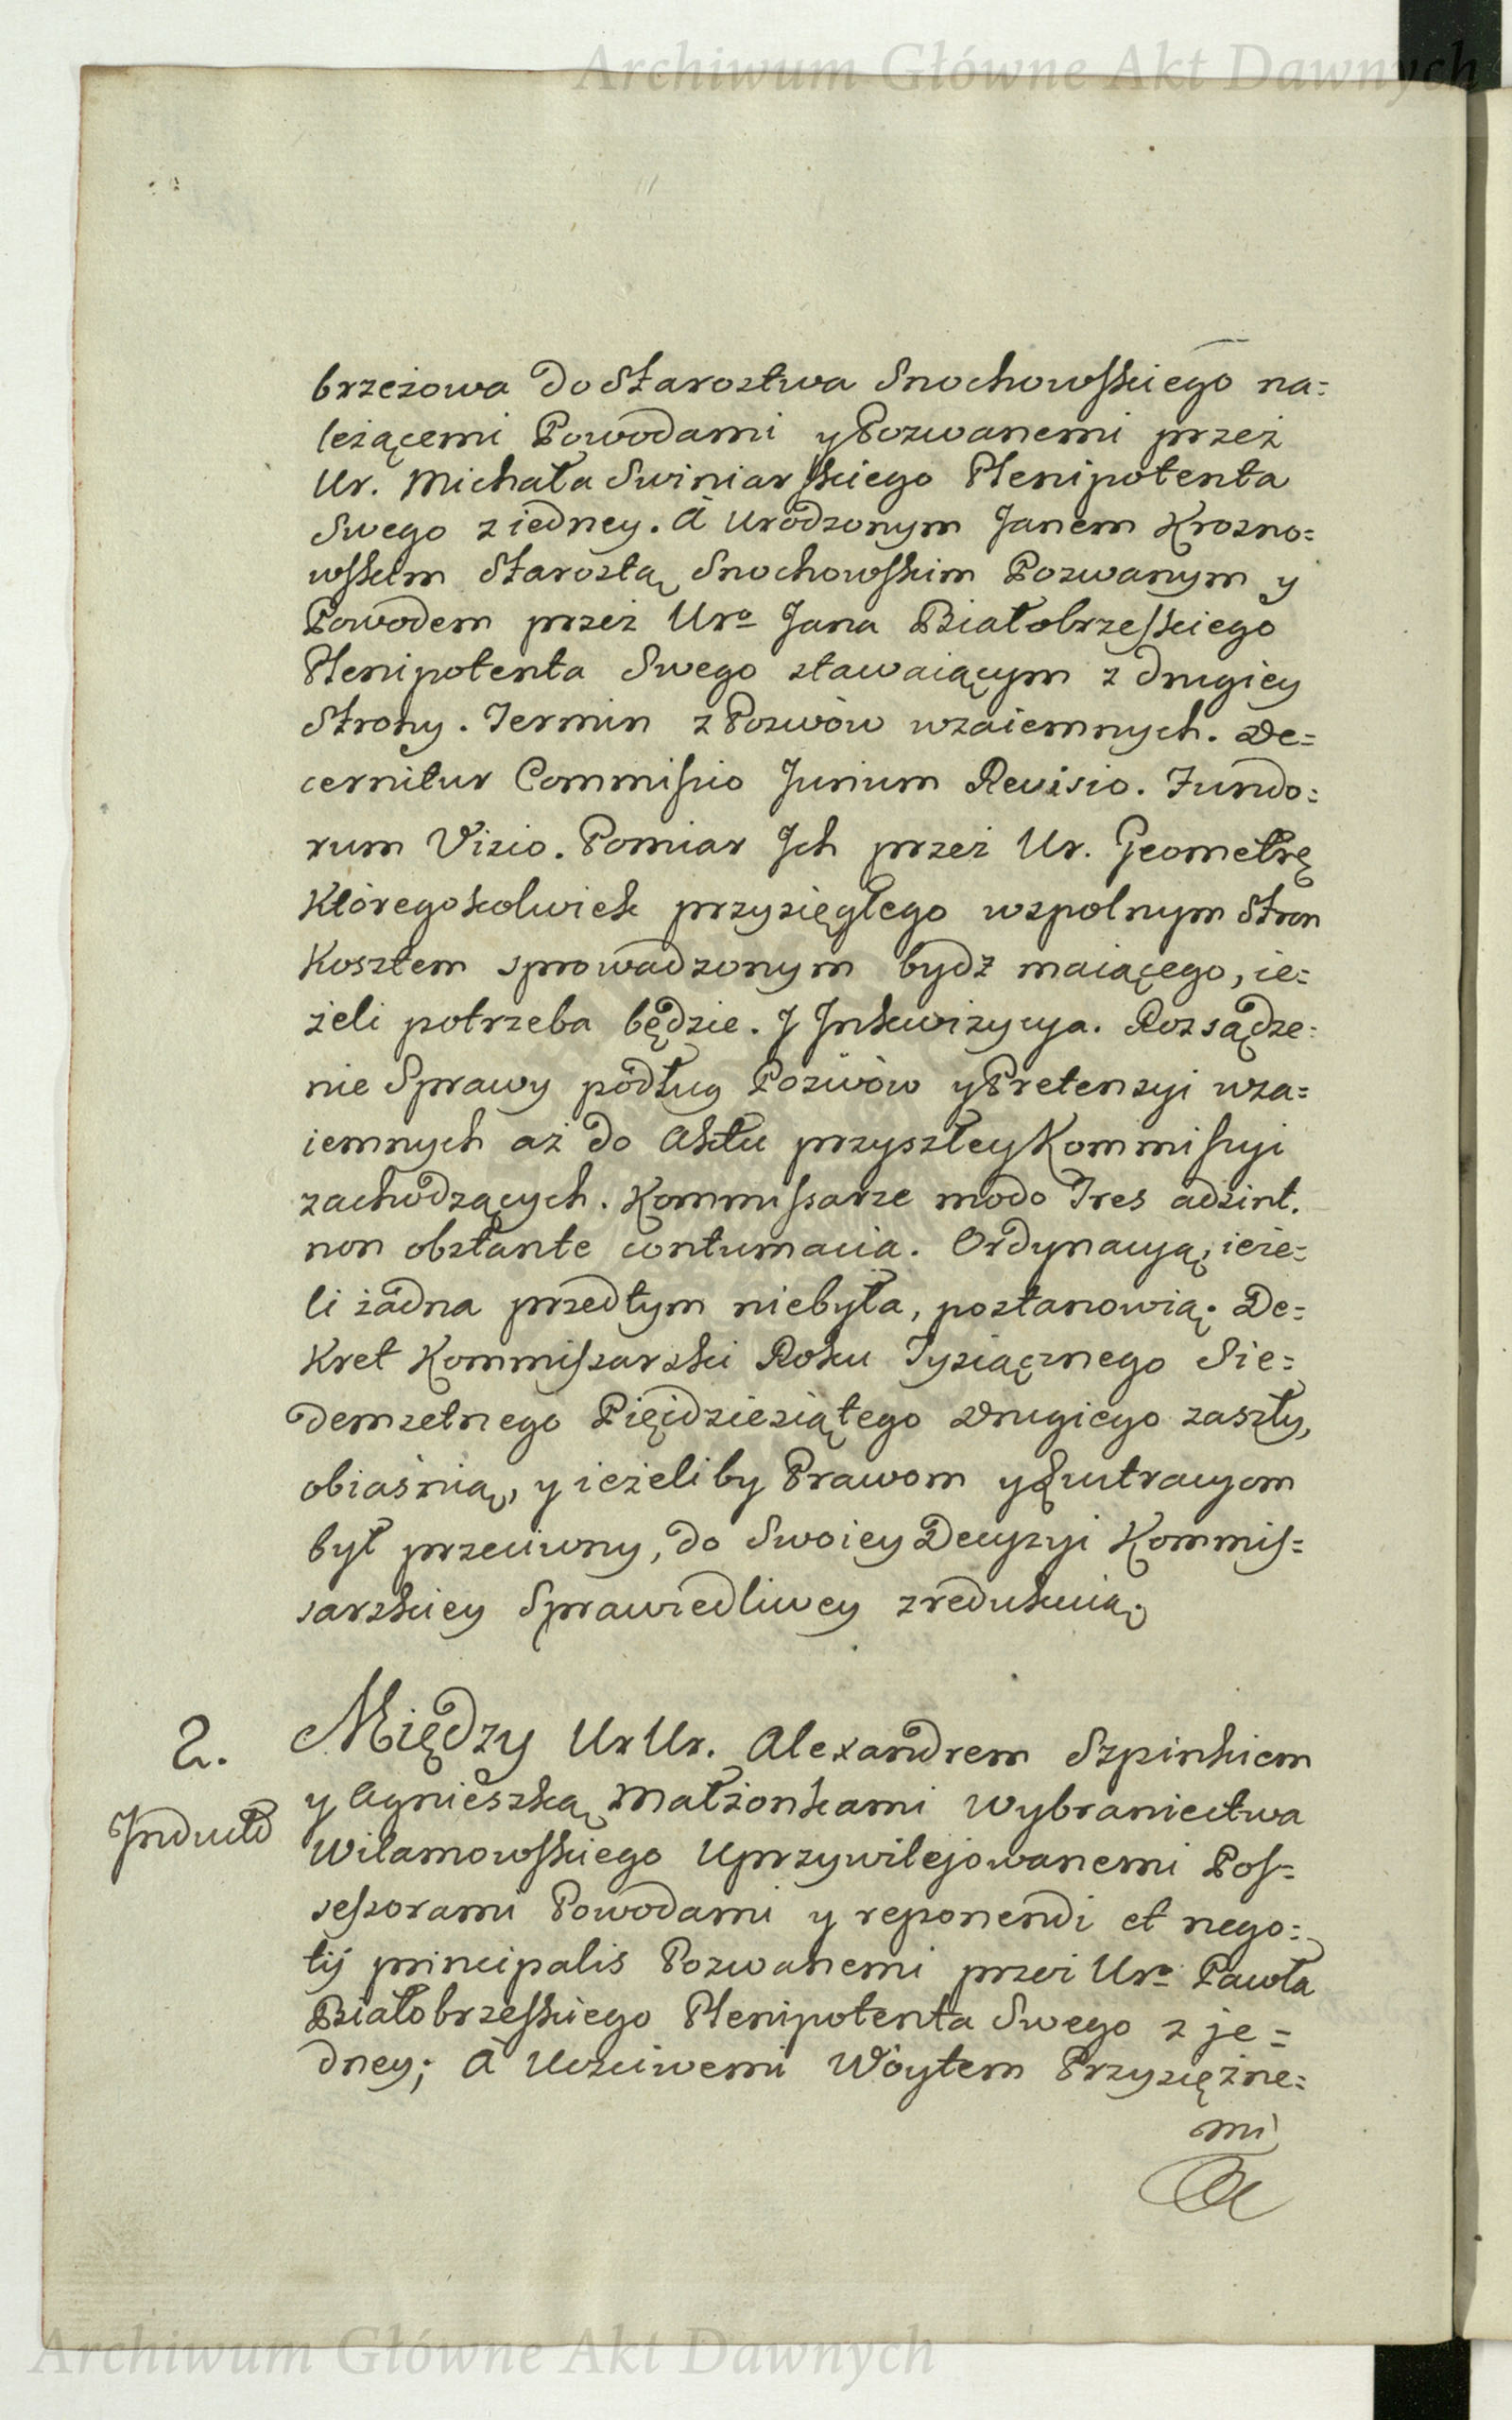 Archiwum Główne Akt Dawnych
brzeżowa do Starostwa Snochowskiego na=
leżącemi Powodami y Pozwanemi przez
Ur. Michała Swiniarskiego Plenipotenta
Swego z iedney. A Urodzonym Janem Krosno=
wskim Starostą Snochowskim Pozwanym y
Powodem przez Urº Jana Białobrzeskiego
Plenipotenta Swego stawaiącym z drugiey
Strony. Termin z Pozwów wzaiemnych. De=
cernitur Commissio Jurium Revisio. Fundo=
rum Visio. Pomiar Jch przez Ur. Geometrę
Któregokolwiek przysięgłego wspolnym Stron
Kosztem sprowadzonym bydź maiącego, ie=
żeli potrzeba będzie. J Jnkwizycya. Rozsądze=
nie Sprawy podług Pozwów y Pretensyi wza=
iemnych aż do Aktu przyszłey Kommissyi
zachodzących. Kommissarze modo Tres adsint.
non obstante contumacia. Ordynacyą, ieże=
li żadna przedtym niebyła, postanowią. De=
kret Kommissarski Roku Tysiącznego Sie=
demsetnego Pięćdziesiątego Drugiego zaszły,
obiaśnią, y ieżeliby Prawom y Lustracyom
był przeciwny, do Swoiey Decyzyi Kommis=
sarskiey Sprawiedliwey zredukuią.
2. Między Ur Ur. Alexandrem Szpinkiem
y Agnieszką Małżonkami Wybraniectwa
Jnduct
Wilamowskiego Uprzywilejowanemi Pos=
sessorami Powodami y reponendi et nego=
tij principalis Pozwanemi przez Urº Pawła
Białobrzeskiego Plenipotenta Swego z je=
dney; A Uczciwemi Wóytem Przysiężne=
mi
Archiwum Główne Akt Dawnych